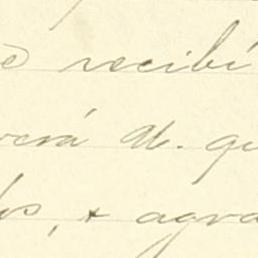 e recibí
verá Ud. qu
los, & agra